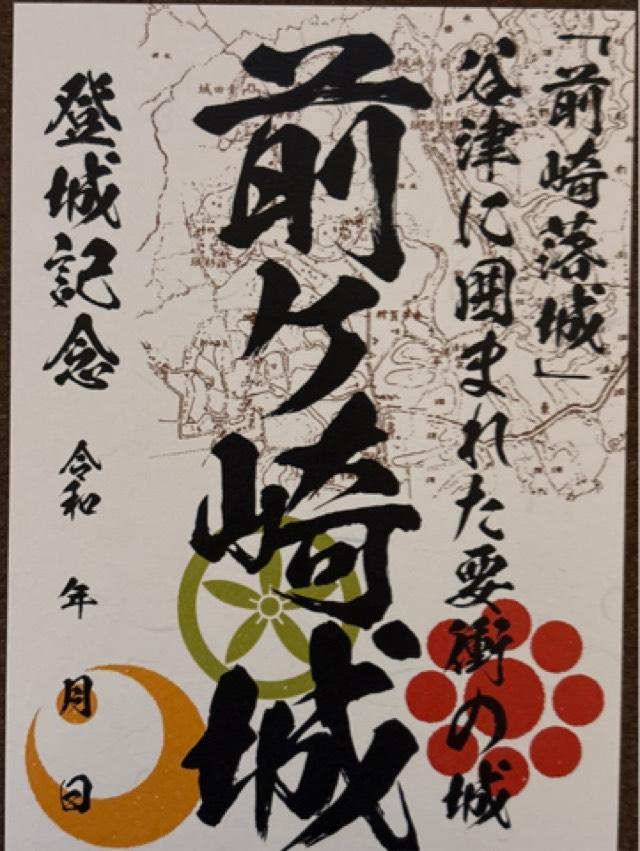 「前崎落城」
谷津に囲まれた要衝の城
前ケ崎城
登城記念
令和 年 月 日